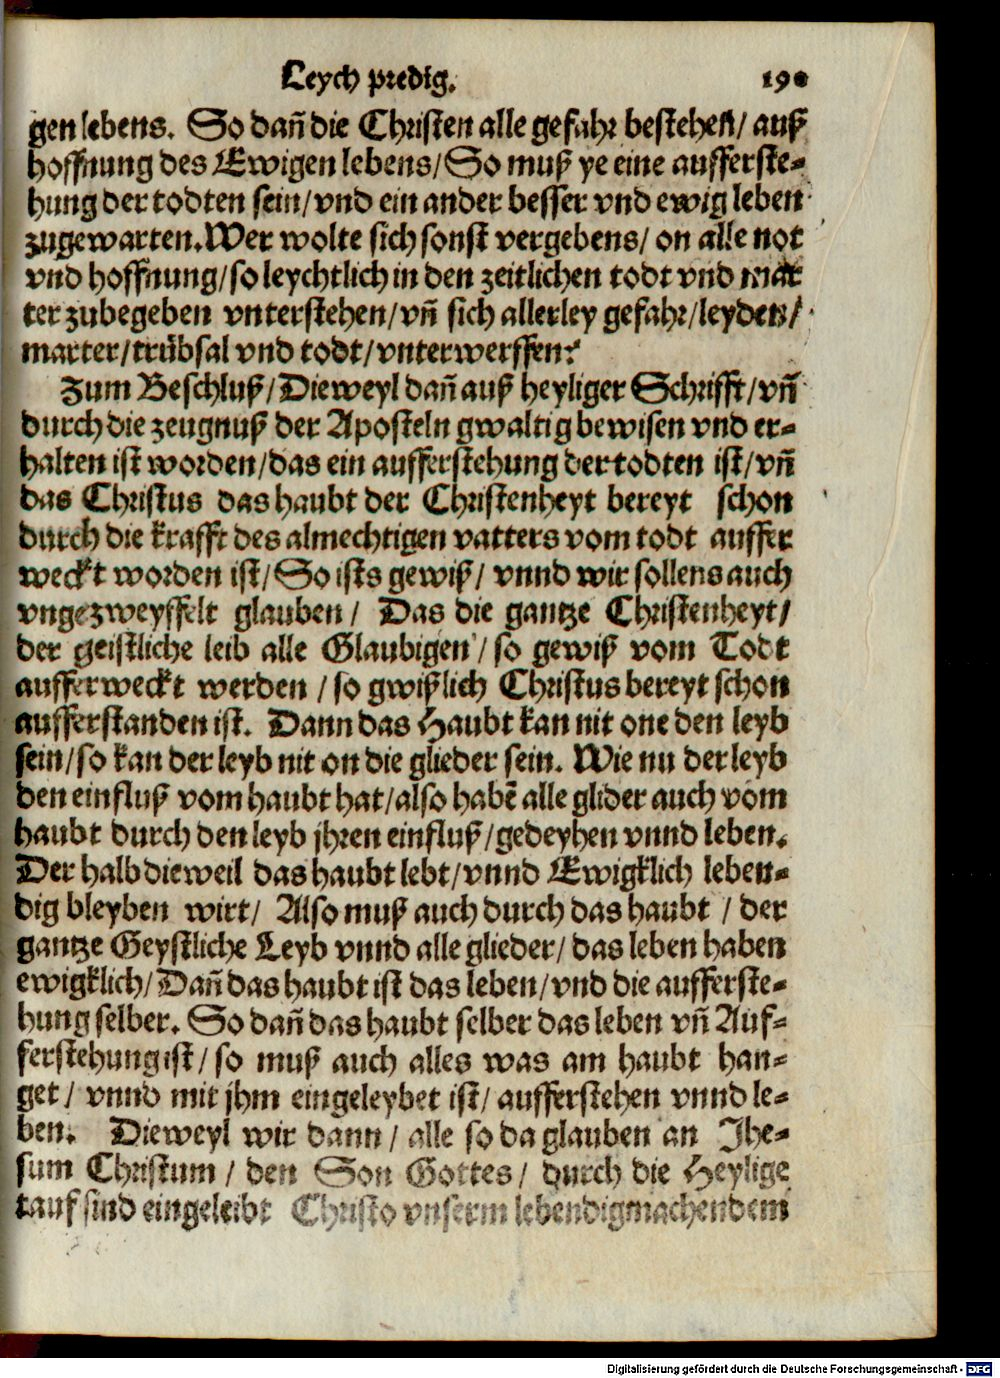 Leych predig. 190
gen lebens. So dañ die Christen alle gefahr bestehen/ auß
hoffnung des Ewigen lebens/ So muß ye eine aufferste-
hung der todten sein/ vnd ein ander besser vnd ewig leben
zugewarten. Wer wolte sich sonst vergebens/ on alle not
vnd hoffnung/ so leychtlich in den zeitlichen todt vnd mar
ter zubegeben vnterstehen/ vñ sich allerley gefahr/ leyden/
marter/ trübsal vnd todt/ vnterwerffen?
Zum Beschluß/ Dieweyl dañ auß heyliger Schrifft/ vñ
durch die zeugnuß der Aposteln gwaltig bewisen vnd er-
halten ist worden/ das ein aufferstehung der todten ist/ vñ
das Christus das haubt der Christenheyt bereyt schon
durch die krafft des almechtigen vatters vom todt auffer
weckt worden ist/ So ists gewiß/ vnnd wir sollens auch
vngezweyffelt glauben/ Das die gantze Christenheyt/
der geistliche leib alle Glaubigen/ so gewiß vom Todt
aufferweckt werden/ so gwißlich Christus bereyt schon
aufferstanden ist. Dann das Haubt kan nit one den leyb
sein/ so kan der leyb nit on die glieder sein. Wie nu der leyb
den einfluß vom haubt hat/ also habẽ alle glider auch vom
haubt durch den leyb jhren einfluß/ gedeyhen vnnd leben.
Der halb dieweil das haubt lebt/ vnnd Ewigklich leben-
dig bleyben wirt/ Also muß auch durch das haubt/ der
gantze Geystliche Leyb vnnd alle glieder/ das leben haben
ewigklich/ Dañ das haubt ist das leben/ vnd die aufferste-
hung selber. So dañ das haubt selber das leben vñ Auf-
ferstehung ist/ so muß auch alles was am haubt han-
get/ vnnd mit jhm eingeleybet ist/ aufferstehen vnnd le-
ben. Dieweyl wir dann/ alle so da glauben an Jhe-
sum Christum/ den Son Gottes/ durch die Heylige
tauf sind eingeleibt Christo vnserm lebendigmachendem
Digitalisierung gefördert durch die Deutsche Forschungsgemeinschaft - DFG